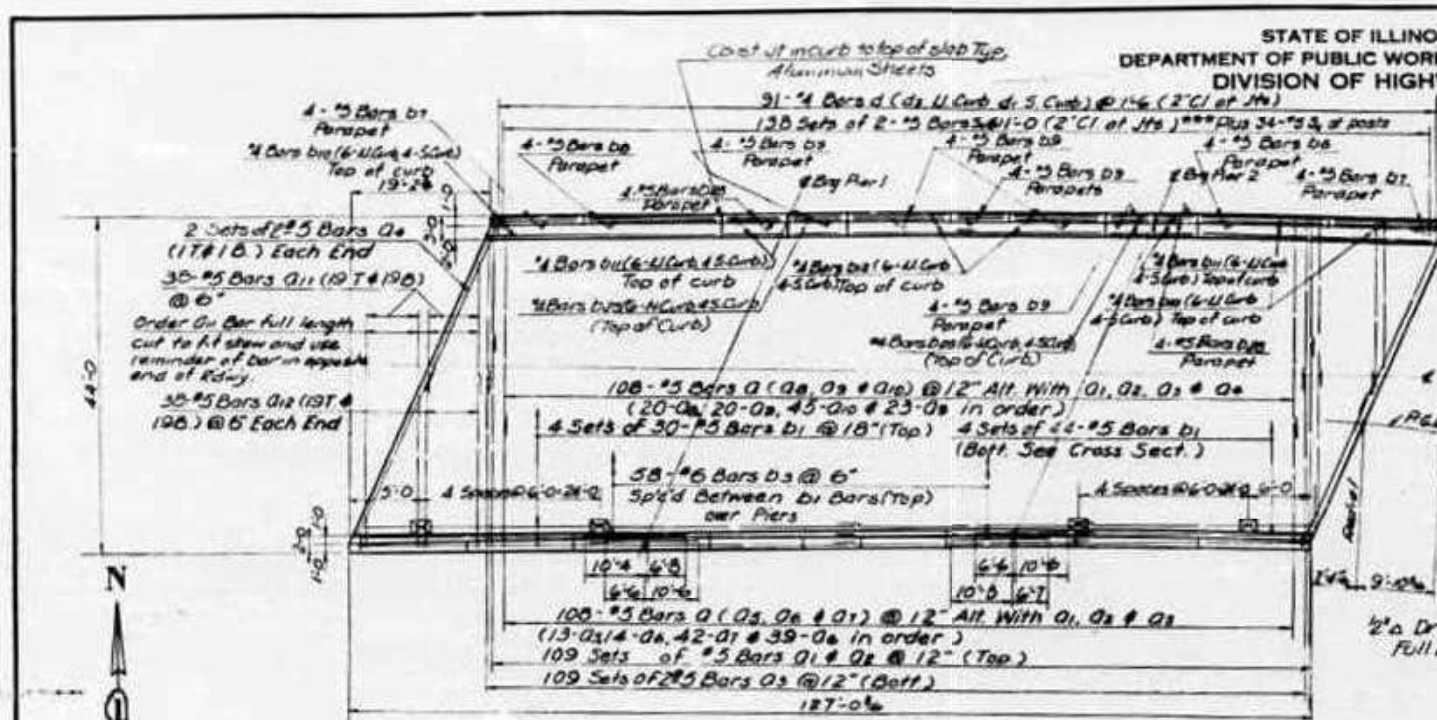 STATE OF ILLINO
DEPARTMENT OF PUBLIC WOR
DIVISION OF HIGH
Const Jt in curb to top of slab Typ.
Aluminum Sheets
91-#4 Bars d (d2 N. Curb d1 S. Curb) @ 1'-6 (2" Cl at Jts)
138 Sets of 2-#5 Bars @ 11'-0 (2" Cl at Jts) *** Plus 34-#5 at posts
4-#5 Bars b7
Parapet
#4 Bars b10 (6-N. Curb, 4-S. Curb)
Top of curb
4-#5 Bars b8
Parapet
4-#5 Bars b9
Parapet
4-#5 Bars b9
Parapet
4-#5 Bars b8
Parapet
4-#5 Bars
Parapet
¢ Brg Pier 1
4-#5 Bars b9
Parapets
¢ Brg Pier 2
4-#5 Bars b7
Parapet
1'-0
44'-0
2 Sets of 2-#5 Bars a4
(1T & 1B.) Each End
38-#5 Bars a11 (19T & 19B)
@ 6"
Order a11 Bar full length
cut to fit skew and use
reminder of bar in opposite
end of Rdwy.
38-#5 Bars a12 (19T &
19B.) @ 6" Each End
#4 Bars b11 (6-N. Curb, 4-S. Curb)
Top of curb
#4 Bars (6-N. Curb, 4-S. Curb)
(Top of Curb)
#4 Bars b12 (6-N. Curb
4-S. Curb) Top of curb
4-#5 Bars b9
Parapet
#4 Bars (6-N. Curb, 4-S. Curb)
(Top of Curb)
#4 Bars b11 (6-N. Curb
4-S. Curb) Top of curb
#4 Bars b10 (6-N. Curb
4-S. Curb) Top of curb
4-#5 Bars
Parapet
108-#5 Bars a (a8, a9 & a10) @ 12" Alt. With a1, a2, a3 & a4
(20-a8, 20-a9, 45-a10 & 23-a9 in order)
4 Sets of 30-#5 Bars b1 @ 18" (Top)
4 Sets of 44-#5 Bars b1
(Bott. See Cross Sect.)
58-#6 Bars b3 @ 6"
Sp'c'd Between b1 Bars (Top)
over Piers
5'-0
4 Spaces @ 6'-0=24'-0
4 Spaces @ 6'-0=24'-0
6'-0
Radial
1'-0
2'-0
1'-0
10'-4
6'-8
6'-6
10'-6
6'-6
10'-6
10'-8
6'-7
N
1
108-#5 Bars a (a5, a6 & a7) @ 12" Alt. With a1, a2 & a3
(13-a5, 14-a6, 42-a7 & 39-a6 in order)
109 Sets of #5 Bars a1 & a2 @ 12" (Top)
109 Sets of 2-#5 Bars a3 @ 12" (Bott.)
Full